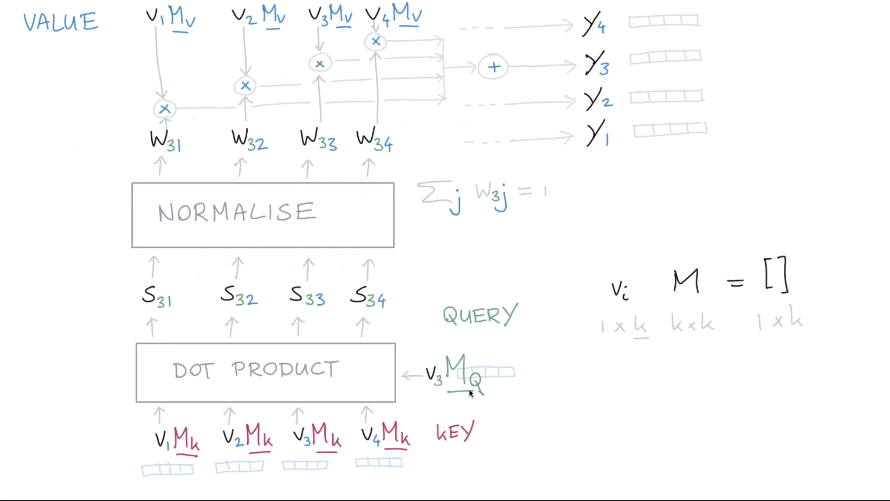 VALUE v₁Mᵥ v₂Mᵥ v₃Mᵥ v₄Mᵥ
x x x x
+
y₄
y₃
y₂
y₁
W₃₁ W₃₂ W₃₃ W₃₄
NORMALISE
∑ⱼ W₃ⱼ = 1
S₃₁ S₃₂ S₃₃ S₃₄
vᵢ M = []
1 x k k x k 1 x k
QUERY
DOT PRODUCT
v₃M_Q
v₁Mₖ v₂Mₖ v₃Mₖ v₄Mₖ KEY